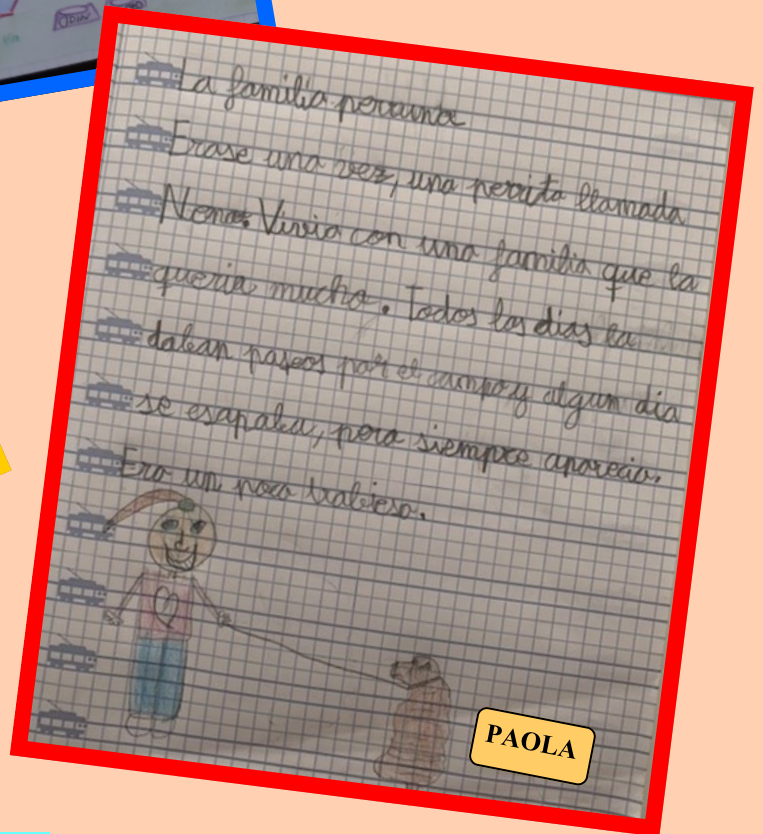 La familia perruna
Erase una vez, una perrita llamada
Nena. Vivia con una familia que la
queria mucho. Todos los dias la
daban paseos por el campo y algun dia
se esapaba, pero siempre aparecia.
Era un poco trabiesa.
PAOLA